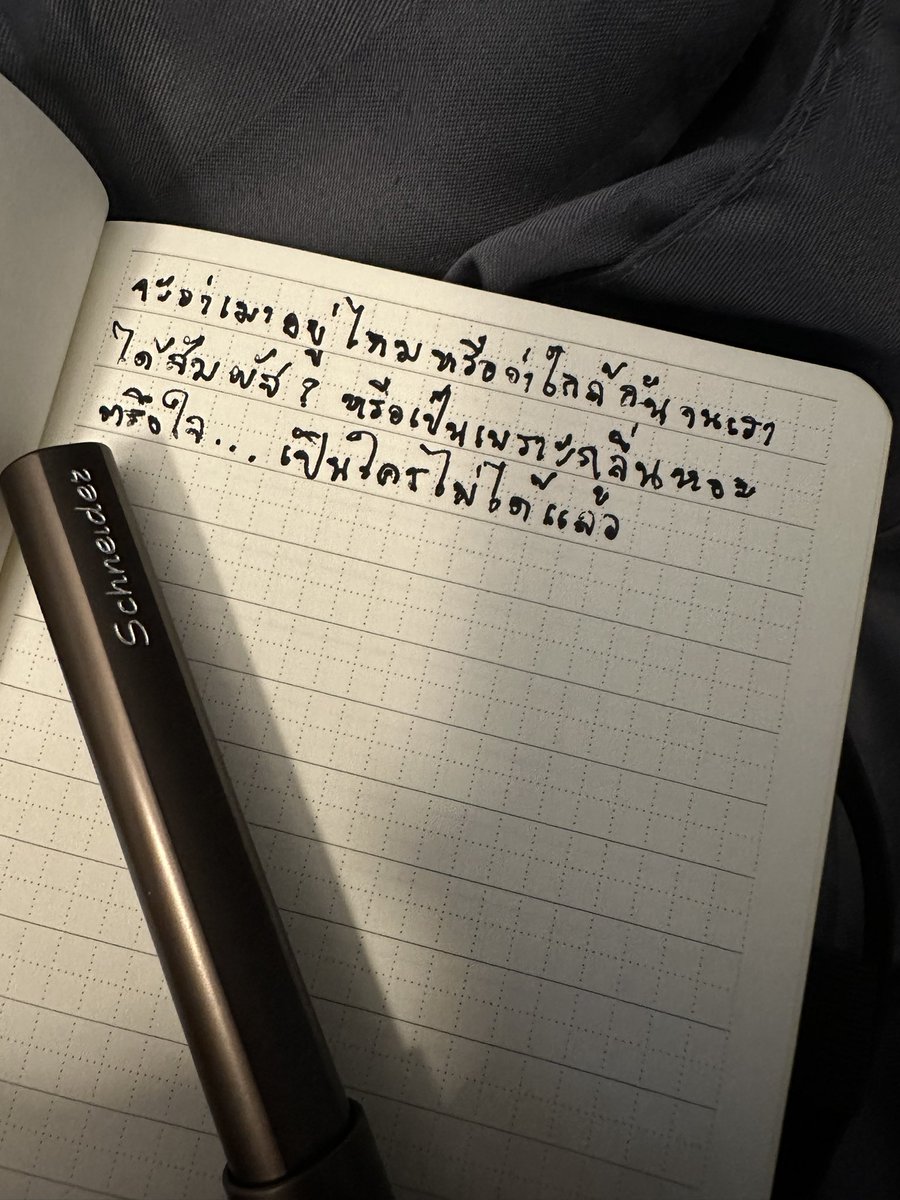 จะว่าเมาอยู่ไหมหรือว่าใกล้กันจนเรา
ได้สัมผัส? หรือเป็นเพราะกลิ่นหอม
หรือใจ... เป็นใครไม่ได้แล้ว
Schneider